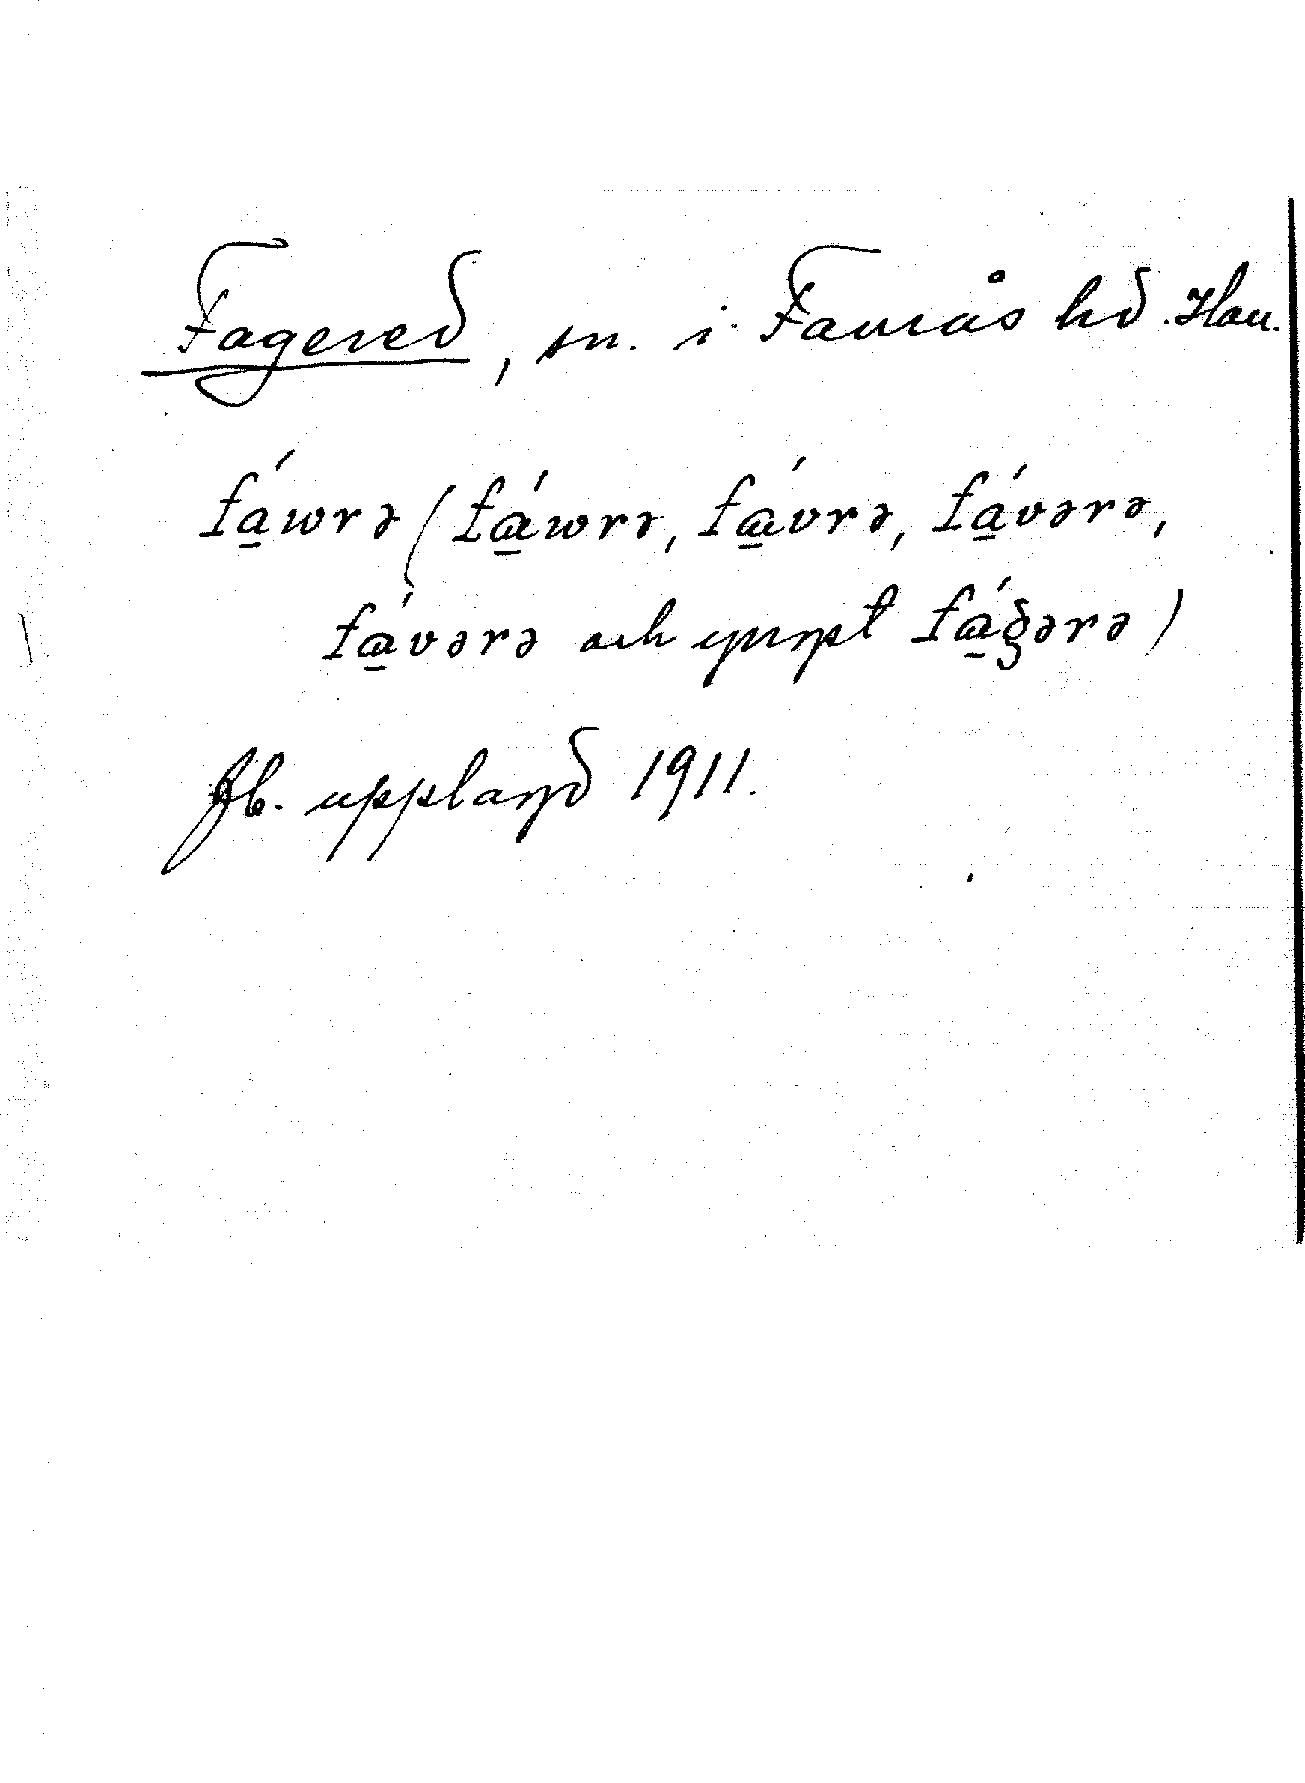 Fagered, sn. i Faurås hd. Hall.
fá̱wrə (fá̱wrə, fá̱vrə, fá̱vərə,
fá̱vərə och yngst fá̱gərə)
Jb. uppland 1911.